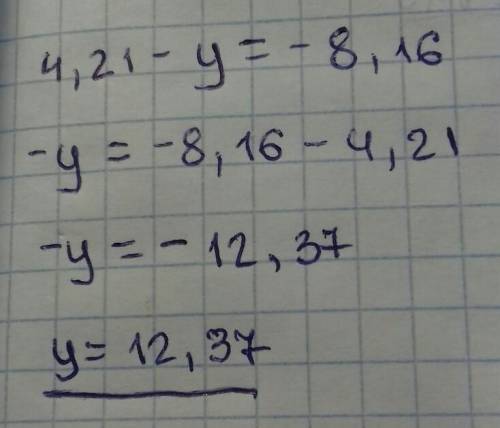 4,21 - y = - 8,16
-y = -8,16 - 4,21
-y = - 12,37
y = 12,37